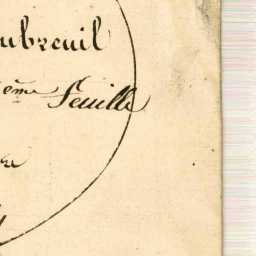 ubreuil
ème Feuille